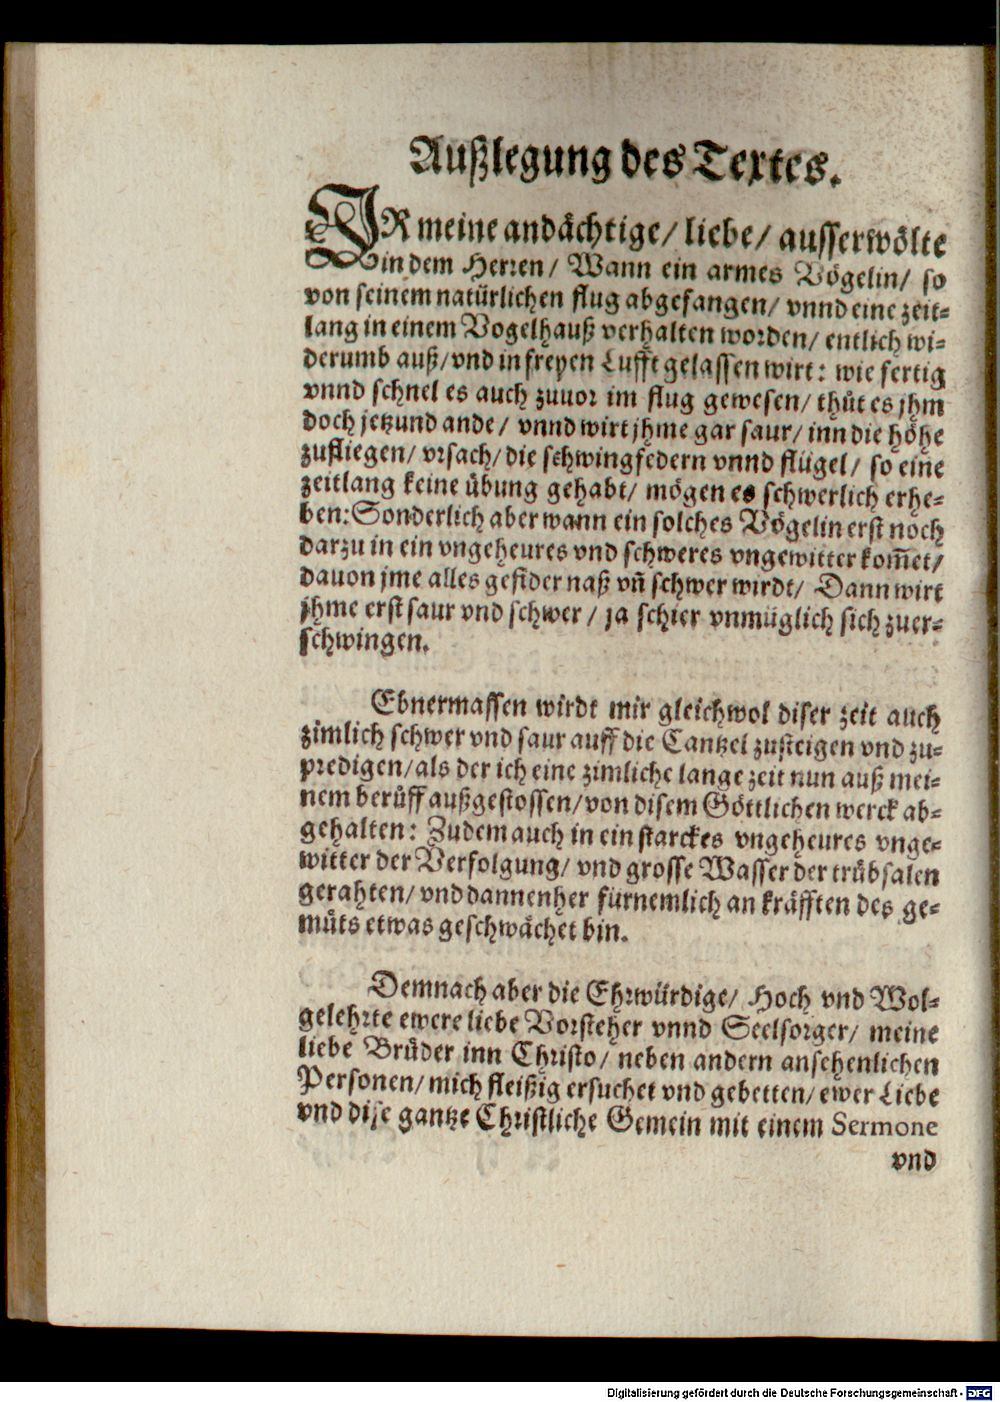 Außlegung des Textes.
IR meine andächtige/ liebe/ ausserwölte
in dem Herren/ Wann ein armes Vögelin/ so
von seinem natürlichen flug abgefangen/ vnnd eine zeit-
lang in einem Vogelhauß verhalten worden/ entlich wi-
derumb auß/ vnd in freyen Lufft gelassen wirt: wie fertig
vnnd schnel es auch zuuor im flug gewesen/ thůt es jhm
doch jetzund ande/ vnnd wirt jhme gar saur/ inn die höhe
zufliegen/ vrsach/ die schwingfedern vnnd flügel/ so eine
zeitlang keine übung gehabt/ mögen es schwerlich erhe-
ben: Sonderlich aber wann ein solches Vögelin erst noch
darzu in ein vngeheures vnd schweres vngewitter kom̃et/
dauon jme alles gefider naß vñ schwer wirdt/ Dann wirt
jhme erst saur vnd schwer/ ja schier vnmüglich sich zuer-
schwingen.
Ebnermassen wirdt mir gleichwol diser zeit auch
zimlich schwer vnd saur auff die Cantzel zusteigen vnd zu-
predigen/ als der ich eine zimliche lange zeit nun auß mei-
nem berůff außgestossen/ von disem Göttlichen werck ab-
gehalten: Zudem auch in ein starckes vngeheures vnge-
witter der Verfolgung/ vnd grosse Wasser der trůbsalen
gerahten/ vnd dannenher fürnemlich an kräfften des ge-
můts etwas geschwächet bin.
Demnach aber die Ehrwürdige/ Hoch vnd Wol-
gelehrte ewere liebe Vorsteher vnnd Seelsorger/ meine
liebe Brůder inn Christo/ neben andern ansehenlichen
Personen/ mich fleißig ersuchet vnd gebetten/ ewer Liebe
vnd dise gantze Christliche Gemein mit einem Sermone
vnd
Digitalisierung gefördert durch die Deutsche Forschungsgemeinschaft - DFG